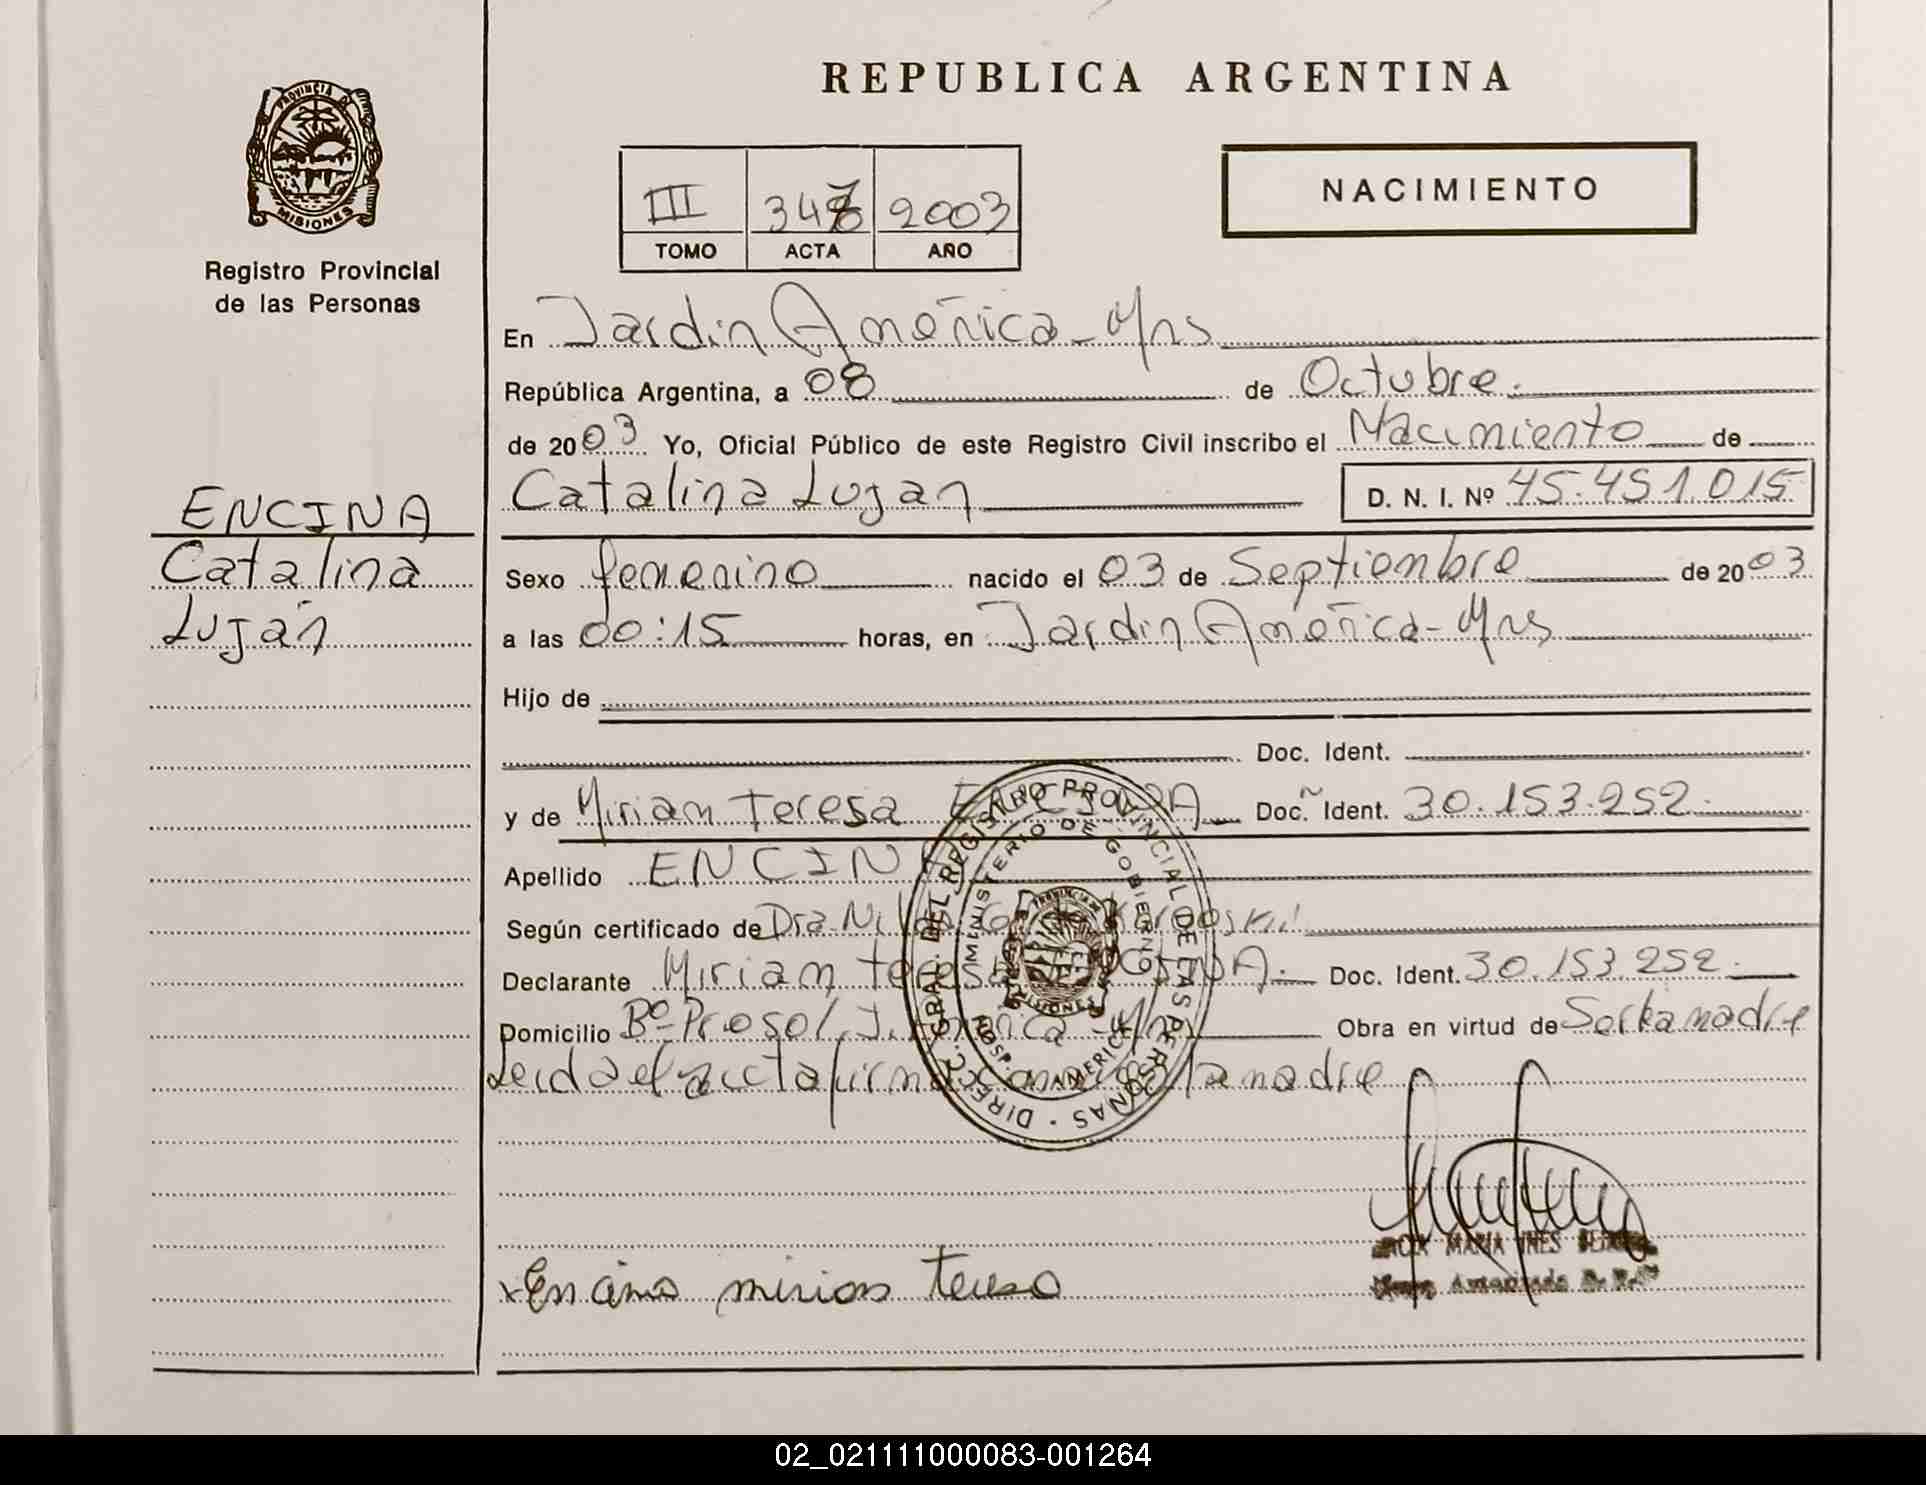 PROVINCIA DE
MISIONES
Registro Provincial
de las Personas
ENCINA
Catalina
Luján
REPUBLICA ARGENTINA
III 2003
TOMO ACTA AÑO
NACIMIENTO
En Jardín América - Mns
República Argentina, a 08 de Octubre.
de 2003 Yo, Oficial Público de este Registro Civil inscribo el Nacimiento de
Catalina Lujan D. N. I. Nº 45.451.015
Sexo femenino nacido el 03 de Septiembre de 2003
a las 00:15 horas, en Jardín América - Mns
Hijo de
Doc. Ident.
y de Miriam Teresa ENCINA Doc. Ident. 30.153.252.
Apellido ENCINA
Según certificado de Dra.
Declarante Miriam Teresa ENCINA. Doc. Ident. 30.153.252.
Domicilio Bº Prosol, J. América - Mns Obra en virtud de Ser la madre
Leida el acta firma la madre
DIREC. GRAL. DEL REGISTRO PROVINCIAL DE LAS PERSONAS
MINISTERIO DE GOBIERNO
HOSP. J. AMERICA
MARIA INES
Encina mirian teresa
02_021111000083-001264